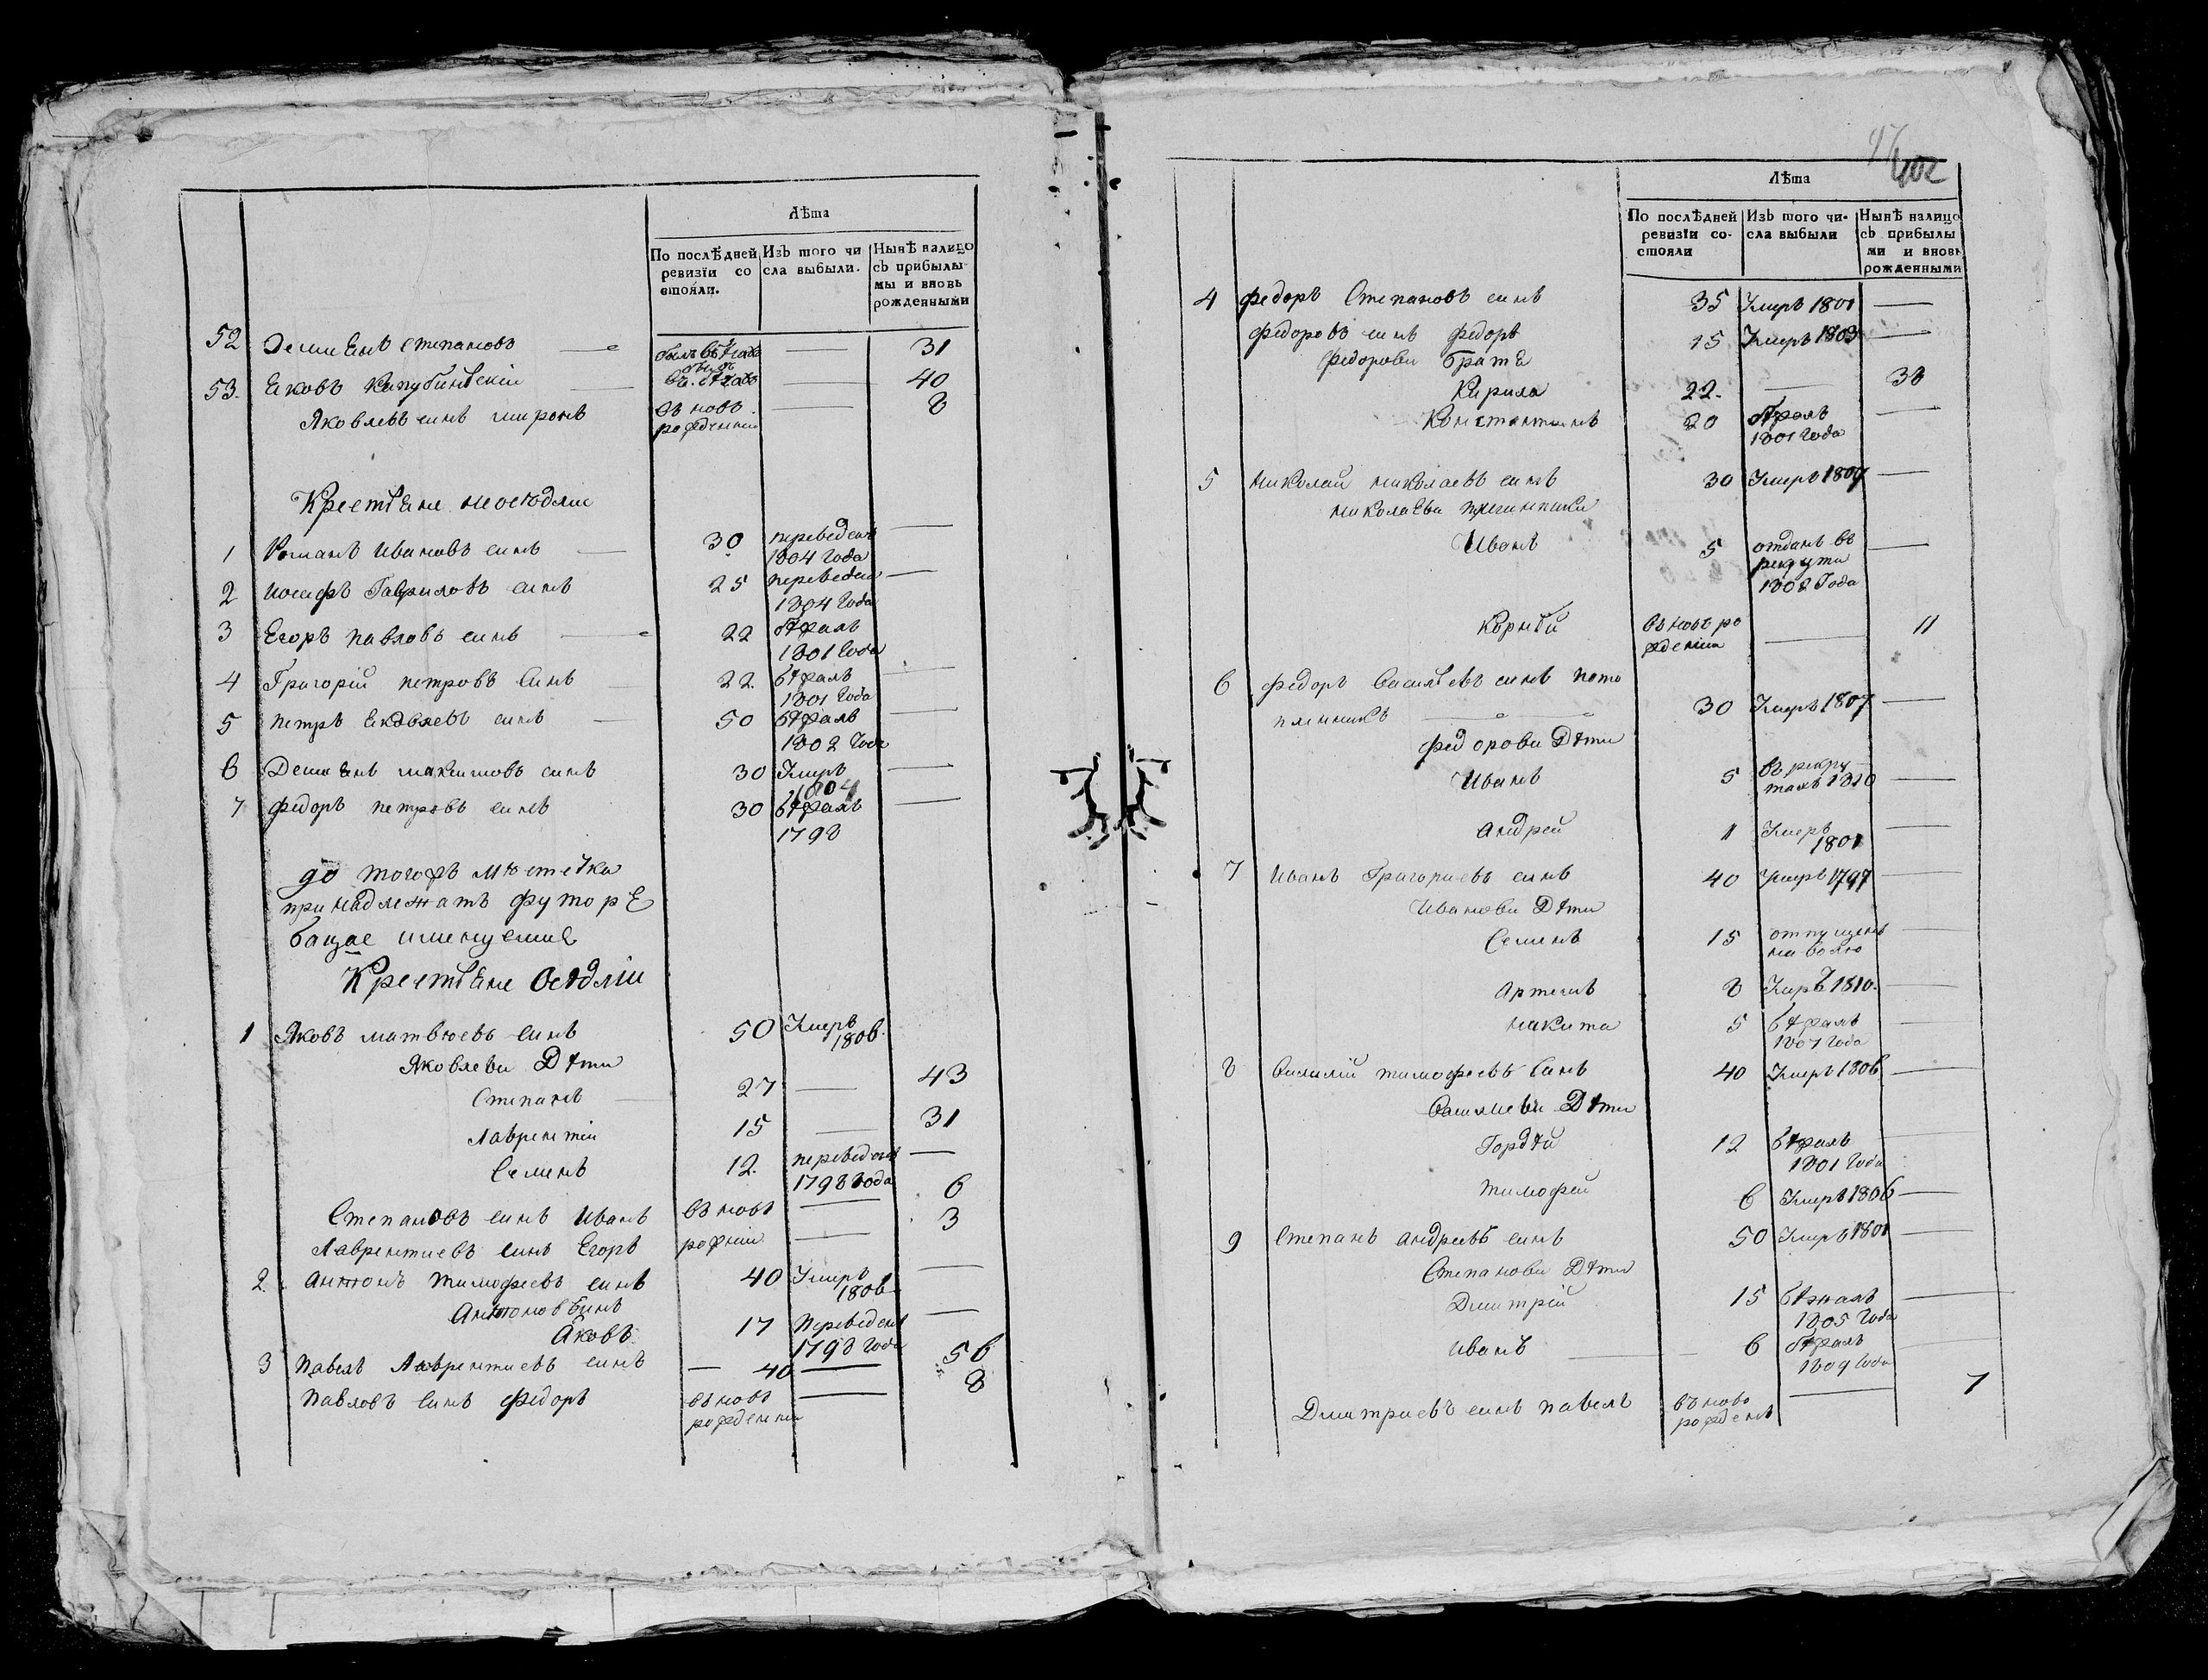 Лѣта
По послѣдней Изъ того чи Нынѣ налицо
ревизїи со сла выбыли. съ прибылы
стояли. мы и вновь
рожденными
52 Демиенъ Степановъ 31
53. Ековъ 40
Яковлевъ синъ миронъ въ новъ рожденни 8
Крестъене неосѣдлии
1 Романъ Ивановъ синъ 30 переведенъ
1804 Года
2 Иосифъ Гавриловъ синъ 25 переведенъ
1804 Года
3 Егоръ павловъ синъ 22 бѣжалъ
1801 Года
4 Григорій петровъ Синъ 22. бѣжалъ
1801 Года
5 петръ Ековлевъ синъ 50 бѣжалъ
1802 Года
6 Демиенъ максимовъ синъ 30 Умеръ
1804
7 федоръ петровъ синъ 30 бѣжалъ
1798
до тогожъ мѣстечка
принадлежатъ футорѣ
Крестъене Осѣдліи
1 Яковъ матвѣевъ Синъ 50 Умеръ
1806.
Яковлеви Дѣти
Степанъ 27 43
Лаврентіи 15 31
Семенъ 12. переведенъ
1798 года
Степановъ синъ Иванъ въ новъ 6
Лаврентиевъ Синъ Егоръ 3
2. Антонъ тимофеевъ синъ 40 Умеръ
1806
Антонов Синъ
Яковъ 17 Переведенъ
1798 года
3 павелъ Лаврентиевъ синъ 40 56
павловъ Синъ федоръ въ новъ 8
рожденни
402
Лѣта
По послѣдней Изъ того чи- Нынѣ налицо
ревизїи со- сла выбыли съ прибылы
стояли ми и вновь
рожденными
4 федоръ Степановъ синъ 35 Умеръ 1801
федоровъ синъ федоръ 15 Умеръ 1803
федорови братѣ
Кирила 22. 38
Константинъ 20 бѣжалъ
1801 года
5 николай николаевъ синъ 30 Умеръ 1807
николаеви
Иванъ 5 отданъ въ
рекрути
1808 Года
Корнѣй въ новъ ро 11
ждении
6 федоръ Василъевъ синъ пото
пленникъ 30 Умеръ 1807
федорови Дѣти
Иванъ 5 въ рекру
тахъ 1810
андрей 11 Умеръ
1801
7 Иванъ Григориевъ синъ 40 Умеръ 1797
Иванови Дѣти
Семенъ 15 отпущенъ
на волю
артемъ 8 Умръ 1810.
никита 5 бѣжалъ
1807 года
8 Василій тимофеевъ Синъ 40 Умеръ 1806
Василиеви Дѣти
Гордѣй 12 бѣжалъ
1801 Года
тимофей 6 Умеръ 1806
9 Степанъ андреевъ синъ 50 Умеръ 1801
Степанови Дѣти
Дмитрій 15 бѣжалъ
1805 Года
иванъ 6 бѣжалъ
1809 Года
Дмитриевъ синъ павелъ въ ново 7
рожденъ